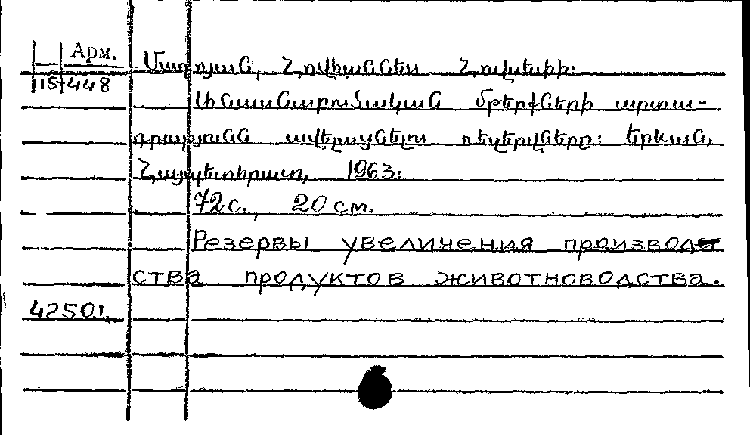 Арм.
115448
Մադոյան, Հովհաննես Հովսեփի:
Անասնաբուծական մթերքների արտա-
դրության ավելացնելու ռեզերվները: Երևան,
Հայպետհրատ, 1963.
72с., 20 см.
Резервы увеличения производ
ства продуктов животноводства.
42501.